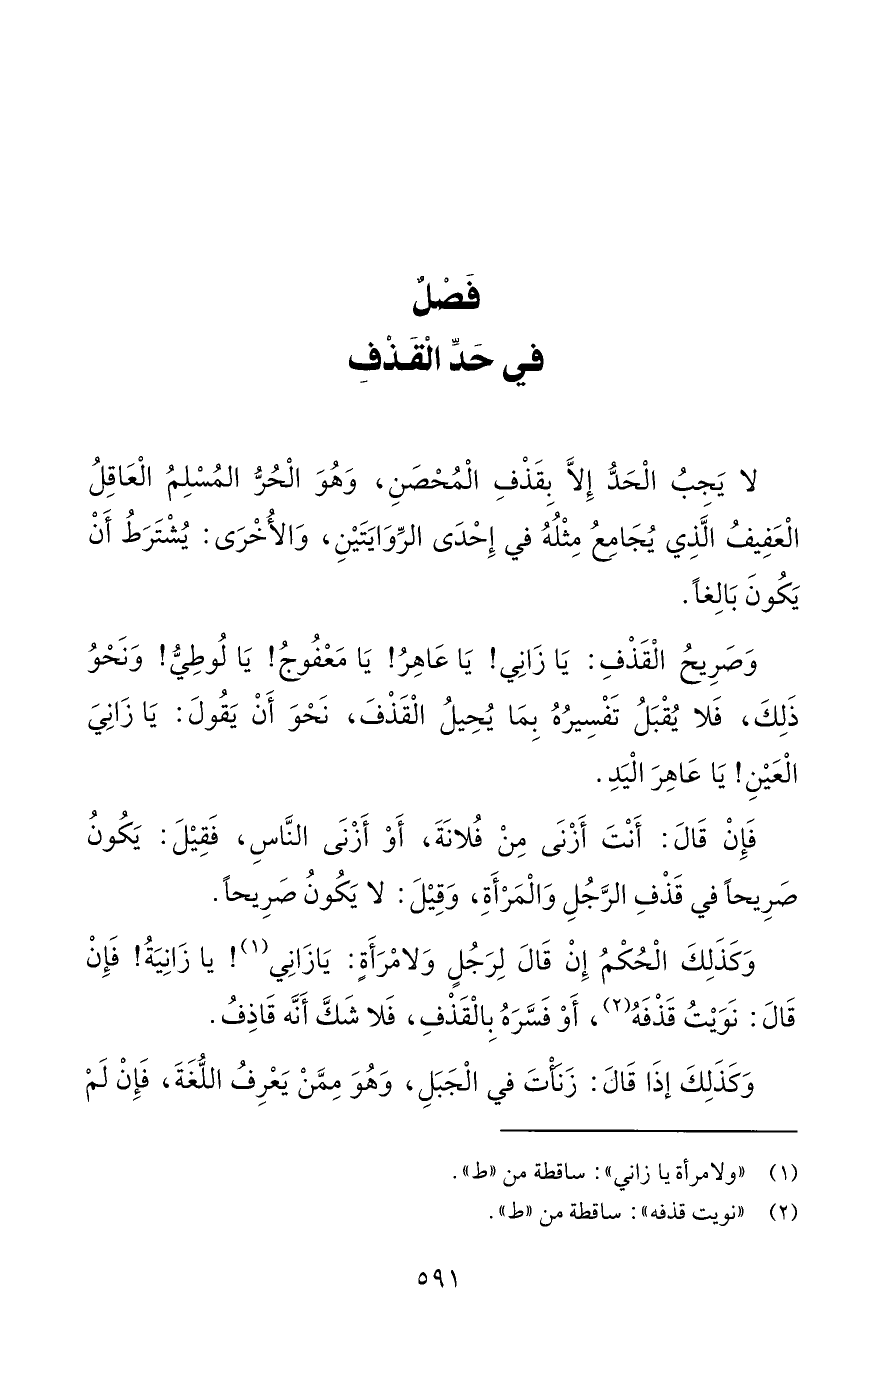 فَصْلٌ
في حَدِّ الْقَذْفِ
لا يَجِبُ الْحَدُّ إِلاَّ بِقَذْفِ الْمُحْصَنِ، وَهُوَ الْحُرُّ المُسْلِمُ الْعَاقِلُ
الْعَفِيفُ الَّذِي يُجَامِعُ مِثْلُهُ في إِحْدَى الرِّوَايَتَيْنِ، وَالأُخْرَى: يُشْتَرَطُ أَنْ
يَكُونَ بَالِغاً.
وَصَرِيحُ الْقَذْفِ: يَا زَانِي! يَا عَاهِرُ! يَا مَعْفُوجُ! يَا لُوطِيُّ! وَنَحْوُ
ذَلِكَ، فَلا يُقْبَلُ تَفْسِيرُهُ بِمَا يُحِيلُ الْقَذْفَ، نَحْوَ أَنْ يَقُولَ: يَا زَانِيَ
الْعَيْنِ! يَا عَاهِرَ الْيَدِ.
فَإِنْ قَالَ: أَنْتَ أَزْنَى مِنْ فُلانَةَ، أَوْ أَزْنَى النَّاسِ، فَقِيْلَ: يَكُونُ
صَرِيحاً في قَذْفِ الرَّجُلِ وَالْمَرْأَةِ، وَقِيْلَ: لا يَكُونُ صَرِيحاً.
وَكَذَلِكَ الْحُكْمُ إِنْ قَالَ لِرَجُلٍ وَلامْرَأَةٍ: يَازَانِي(١)! يا زَانِيَةُ! فَإِنْ
قَالَ: نَوَيْتُ قَذْفَهُ(٢)، أَوْ فَسَّرَهُ بِالْقَذْفِ، فَلا شَكَّ أَنَّه قَاذِفُ.
وَكَذَلِكَ إذَا قَالَ: زَنَأْتَ في الْجَبَلِ، وَهُوَ مِمَّنْ يَعْرِفُ اللُّغَةَ، فَإِنْ لَمْ
(١) «ولامرأة يا زاني»: ساقطة من «ط».
(٢) «نويت قذفه»: ساقطة من «ط».
٥٩١